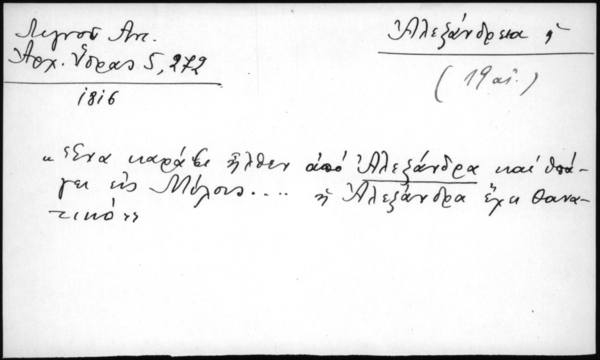 Λιγνοῦ Αντ.
Ἀρχ. Ὕδρας 5, 272
1816
Ἀλεξάνδρεια ἡ
(19 αἰ.)
«Ἕνα καράβι ἦλθεν ἀπό Ἀλεξάνδρα καί ὑπά-
γει εἰς Μόλους.... ἡ Ἀλεξάνδρα ἔχει θανα-
τικό»